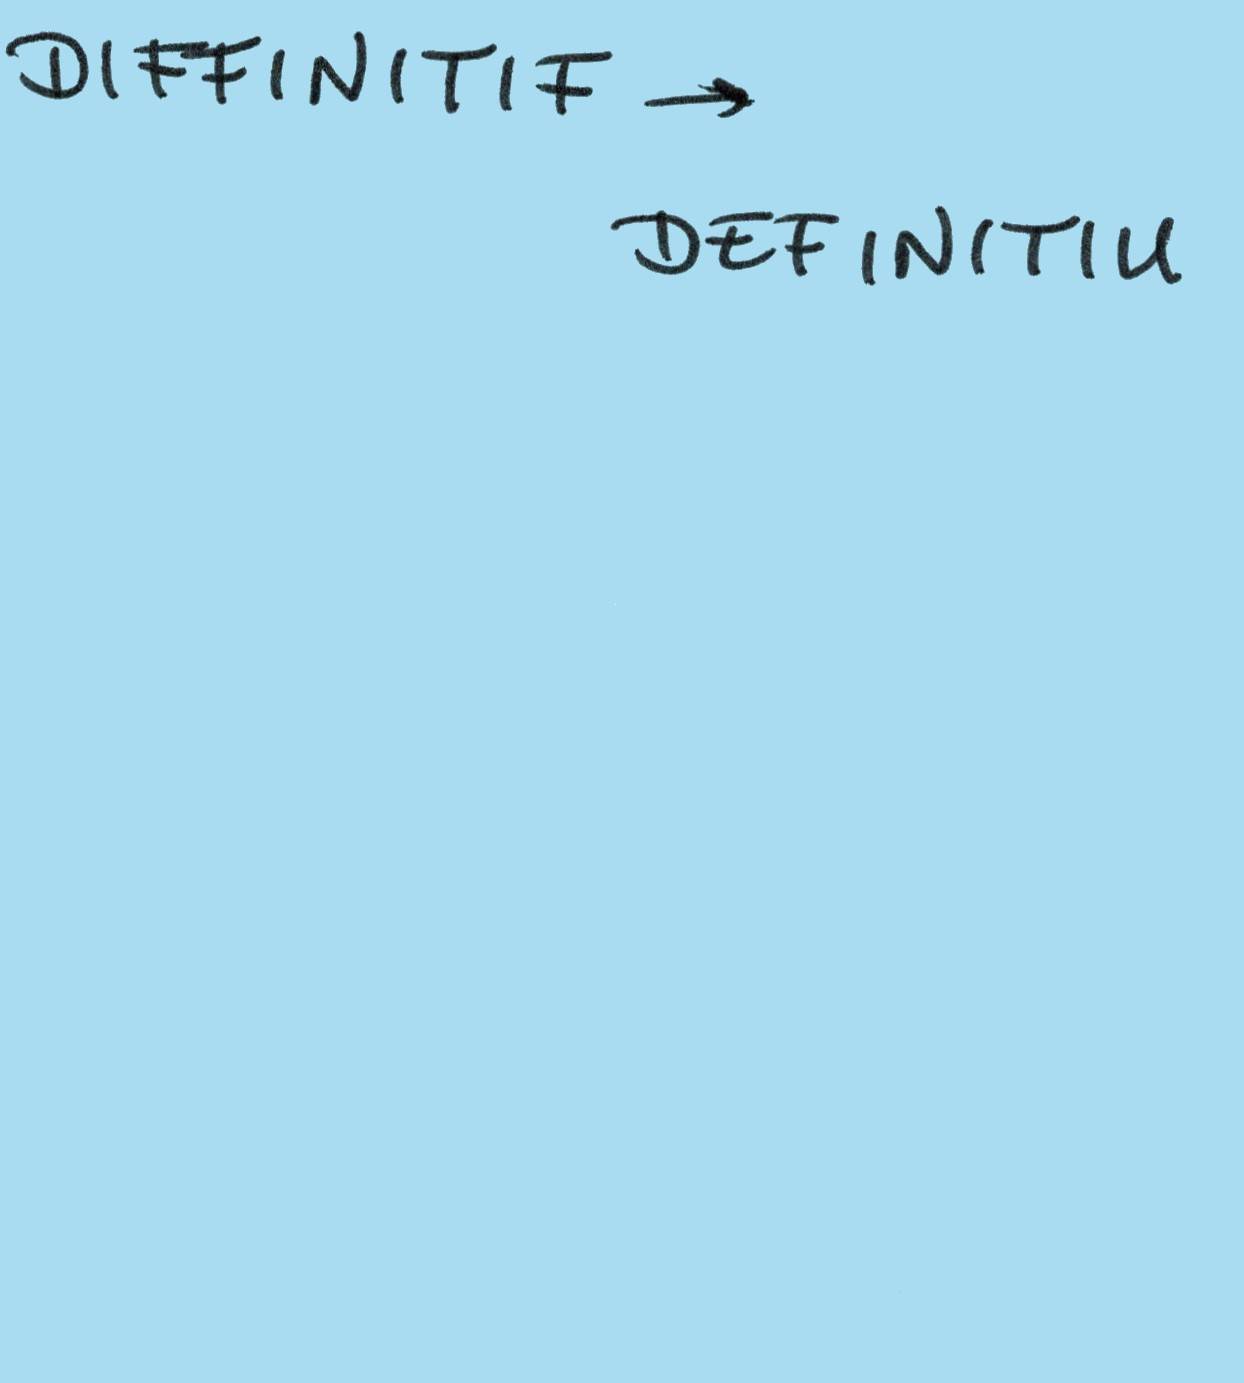 DIFFINITIF →
DEFINITIV